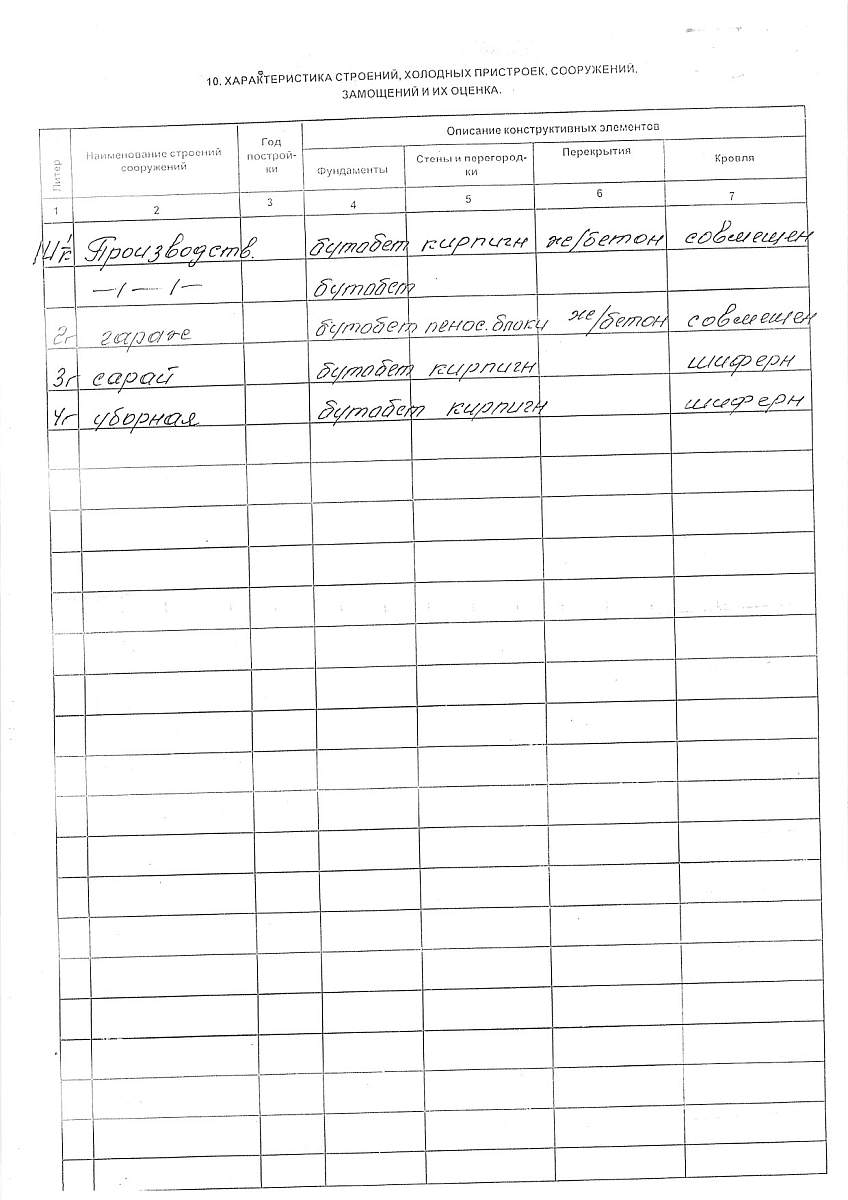 10. ХАРАКТЕРИСТИКА СТРОЕНИЙ, ХОЛОДНЫХ ПРИСТРОЕК, СООРУЖЕНИЙ,
ЗАМОЩЕНИЙ И ИХ ОЦЕНКА.
Литер Наименование строений сооружений Год построй-ки Описание конструктивных элементов
Фундаменты Стены и перегород-ки Перекрытия Кровля
1 2 3 4 5 6 7
Производств. бутобет кирпичн же/бетон совмещен
—〃—〃— бутобет
2г гараж бутобет пенос. блоки же/бетон совмещен
3г сарай бутобет кирпичн шиферн
4г уборная бутобет кирпичн шиферн